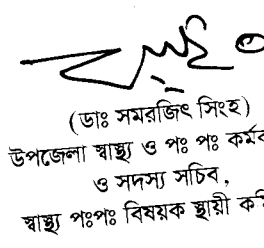 (ডাঃ সমরজিৎ সিংহ)
উপজেলা স্বাস্থ্য ও পঃ পঃ
ও সদস্য সচিব,
স্বাস্থ্য পঃপঃ বিষয়ক স্থায়ী